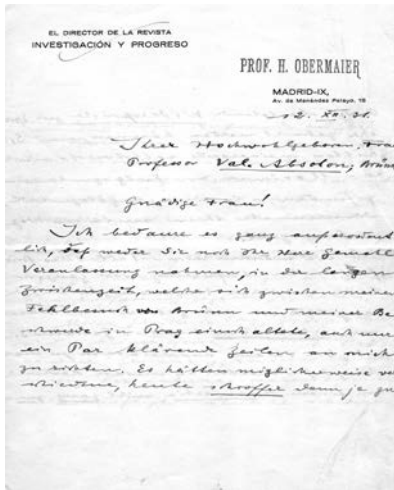 EL DIRECTOR DE LA REVISTA
INVESTIGACIÓN Y PROGRESO
PROF. H. OBERMAIER
MADRID-IX,
Av. de Menéndez Pelayo, 15
12. XII. 31.
Ihrer Hochwohlgeboren, Frau
Professor Val. Absolon, Brünn
Gnädige Frau!
Ich bedaure es ganz ausserordent
lich, daß weder Sie noch Ihr Herr Gemahl
Veranlassung nahmen, in der langen
Zwischenzeit, welche sich zwischen meinen
Fehlbesuch von Brünn und meiner Be
schwerde in Prag einschaltete, auch nur
ein Par klärende Zeilen an mich
zu richten. Es hätten möglicherweise
schiedene, heute schroffer denn je